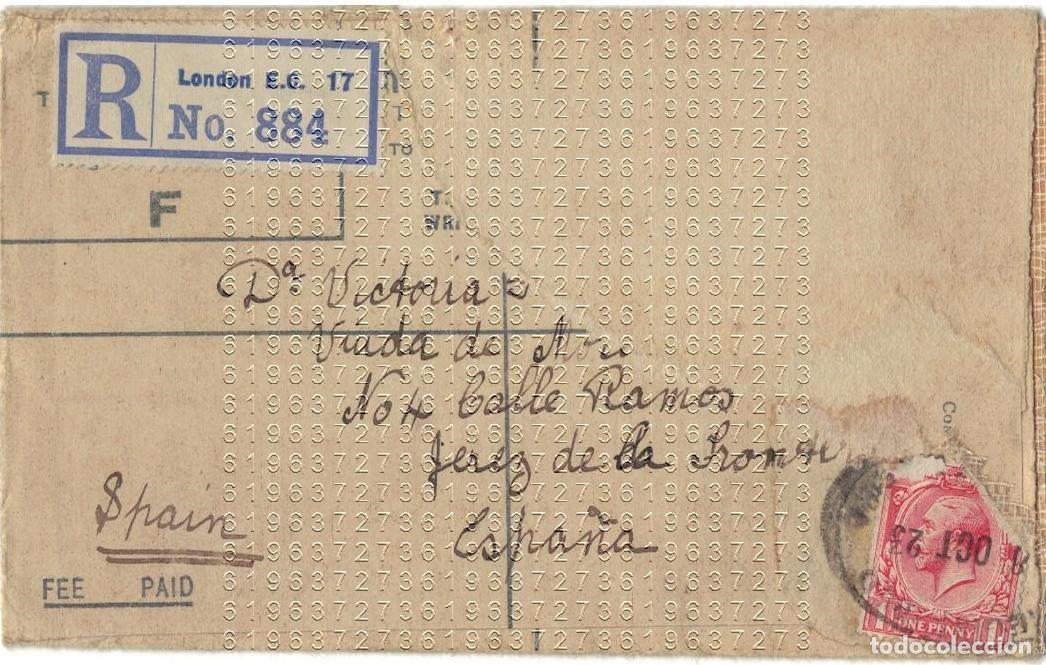 R
London E.C. 17
No. 884
F
WRI
TO
Da Victoria
Viuda de
No 4 Calle Ramos
Jerez de la
España
Spain
FEE PAID
CON
OCT 23
ONE PENNY
619637273
todocoleccion